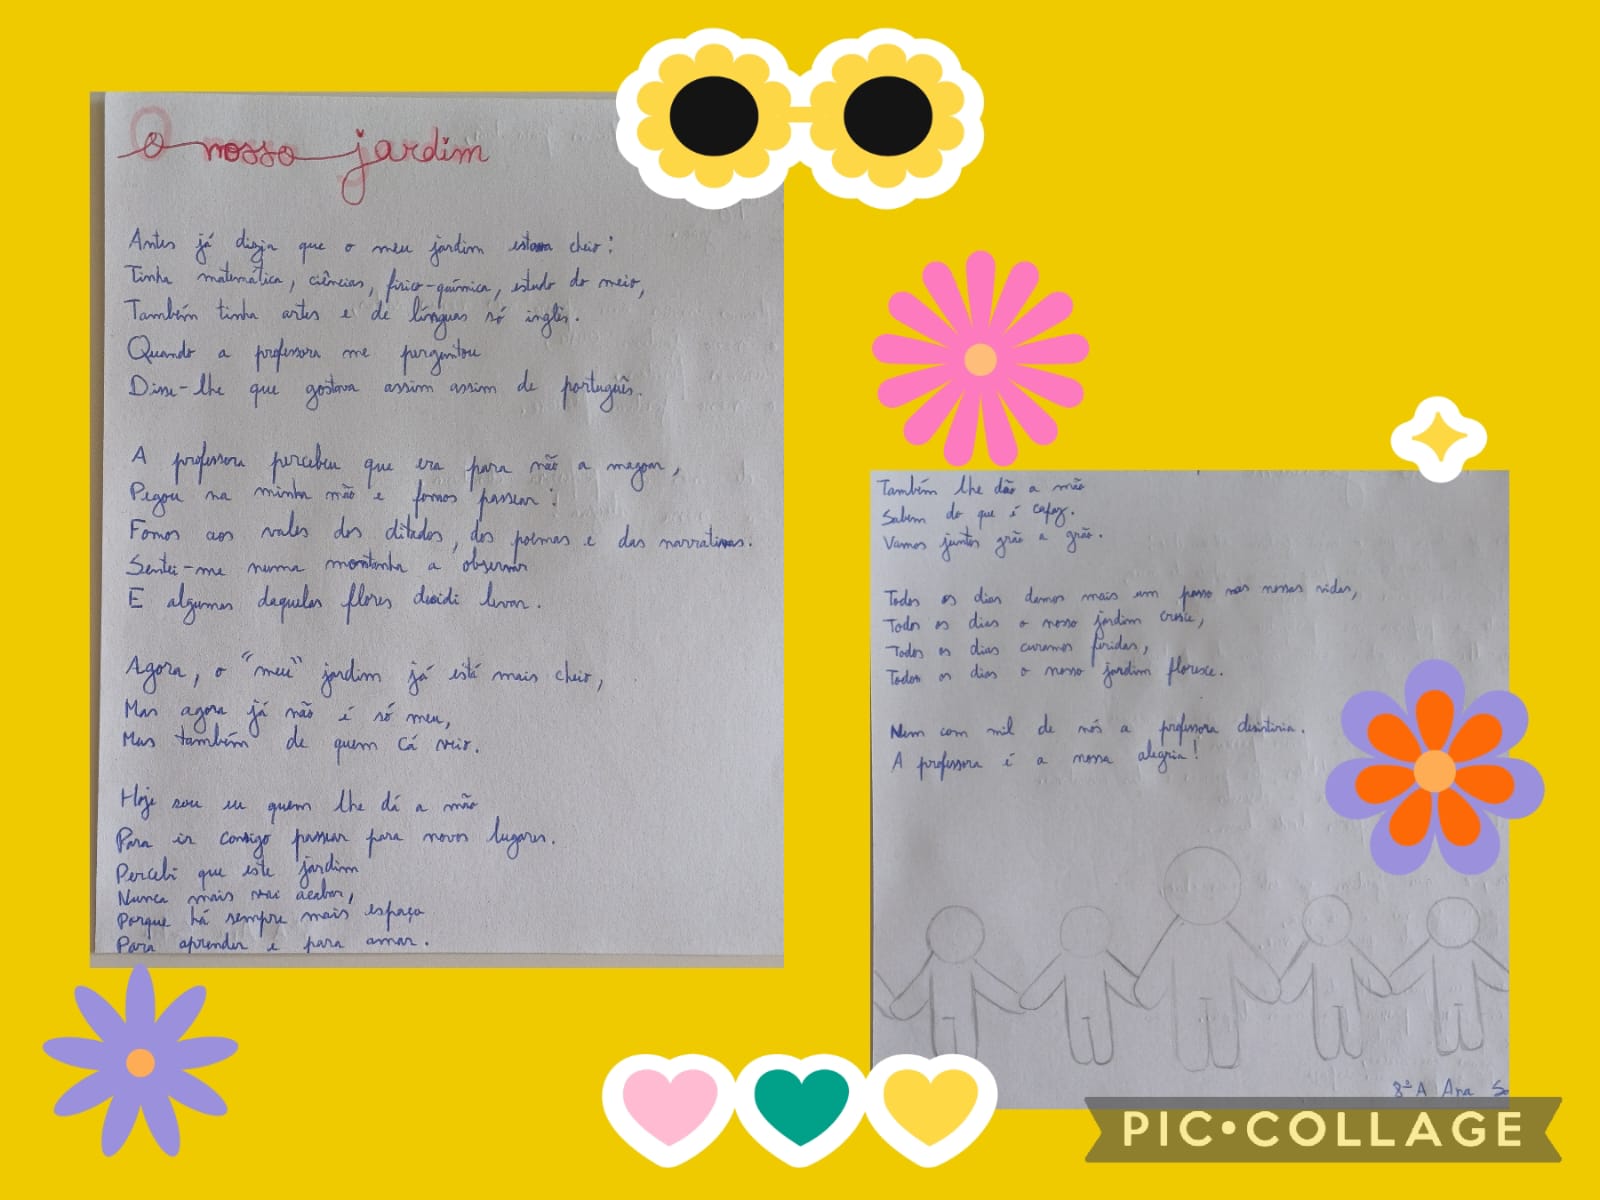 O nosso jardim
Antes já dizia que o meu jardim estava cheio:
Tinha matemática, ciências, físico-química, estudo do meio,
Também tinha artes e de línguas só inglês.
Quando a professora me perguntou
Disse-lhe que gostava assim assim de português.
A professora percebeu que era para não a magoar,
Pegou na minha mão e fomos passear:
Fomos aos vales dos ditados, dos poemas e das narrativas.
Sentei-me numa montanha a observar
E algumas daquelas flores decidi levar.
Agora, o "meu" jardim já está mais cheio,
Mas agora já não é só meu,
Mas também de quem cá veio.
Hoje sou eu quem lhe dá a mão
Para ir consigo passear para novos lugares.
Percebi que este jardim
Nunca mais vai acabar,
Porque há sempre mais espaço
Para aprender e para amar.
Também lhe dão a mão
Sabem do que é capaz.
Vamos juntos grão a grão.
Todos os dias damos mais um passo nas nossas vidas,
Todos os dias o nosso jardim cresce,
Todos os dias curamos feridas,
Todos os dias o nosso jardim floresce.
Nem com mil de nós a professora desistiria.
A professora é a nossa alegria!
8ºA Ana So
PIC•COLLAGE